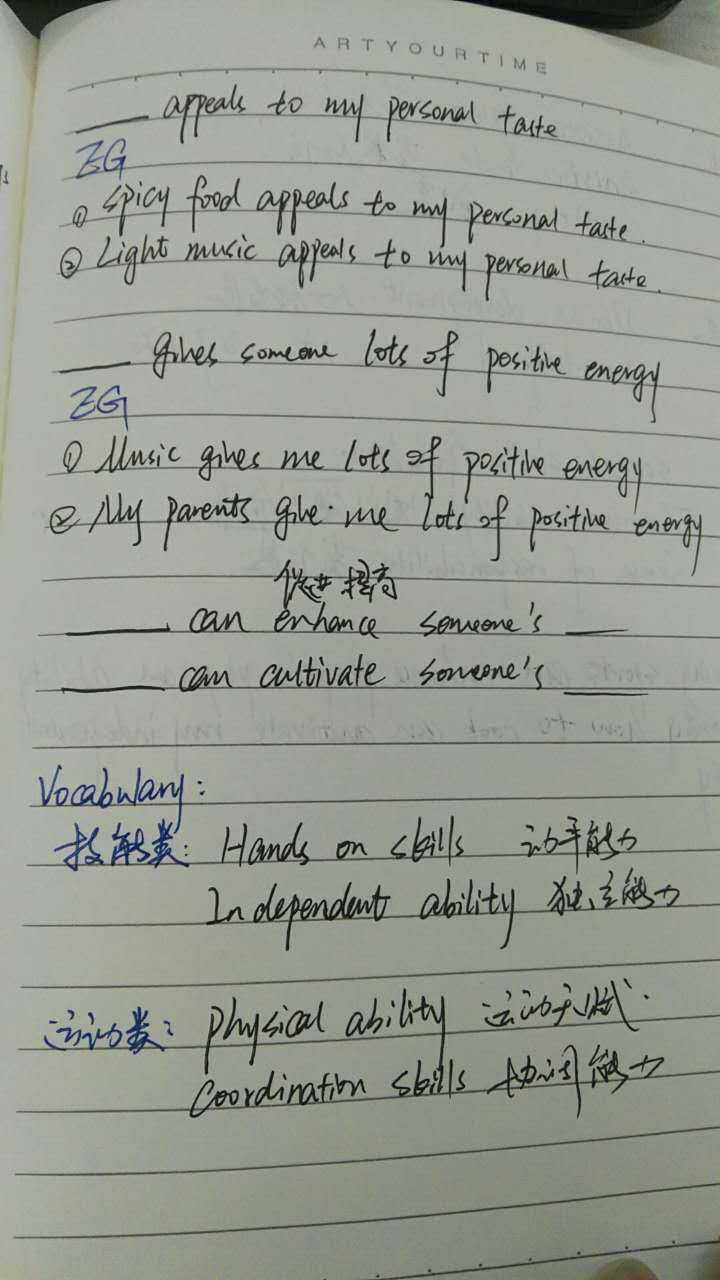 ARTYOURTIME
___ appeals to my personal taste
EG
① Spicy food appeals to my personal taste.
② Light music appeals to my personal taste.
___ gives someone lots of positive energy
EG
① Music gives me lots of positive energy
② My parents give me lots of positive energy
促进 提高
___ can enhance someone's ___
___ can cultivate someone's ___
Vocabulary:
技能类: Hands on skills 动手能力
Independent ability 独立能力
运动类: Physical ability 运动
Coordination skills 协调能力